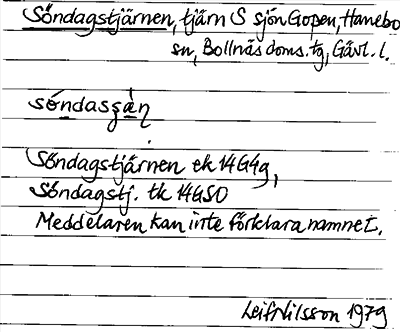 Söndagstjärnen, tjärn S sjön Gopen, Hanebo
sn, Bollnäs doms. tg, Gävl. l.
söndasşä̀ṇ
Söndagstjärnen ek 14G4g,
Söndagstj. tk 14GSO
Meddelaren kan inte förklara namnet.
Leif Nilsson 1979